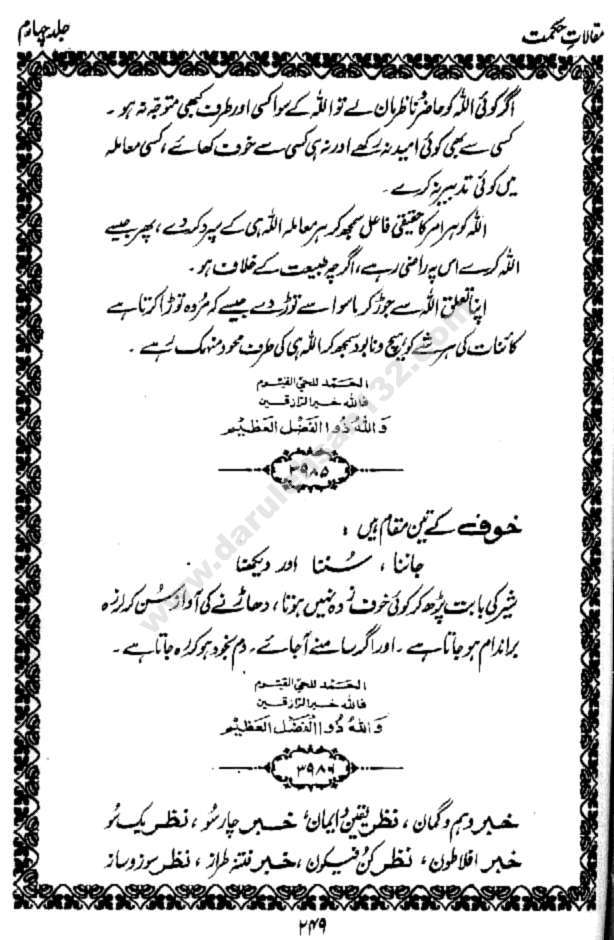 مقالاتِ حکمت
جلد چہارم
اگر کوئی اللہ کو حاضر و ناظر مان لے تو اللہ کے سوا کسی اور طرف کبھی متوجہ نہ ہو ۔
کسی سے بھی کوئی امید نہ رکھے اور نہ ہی کسی سے خوف کھائے ، کسی معاملہ
میں کوئی تدبیر نہ کرے ۔
اللہ کو ہر امر کا حقیقی فاعل سمجھ کر ہر معاملہ اللہ ہی کے سپرد کر دے ، پھر جیسے
اللہ کرے اس پہ راضی رہے ، اگرچہ طبیعت کے خلاف ہو ۔
اپنا تعلق اللہ سے جوڑ کر ماسوا سے توڑ دے جیسے کہ مُردہ توڑا کرتا ہے
کائنات کی ہر شے کو ہیچ و نابود سمجھ کر اللہ ہی کی طرف محو و منہمک رہے ۔
الحَمد للحیّ القیّوم
فاللہ خیر الرازقین
وَاللہُ ذُوا الفَضلِ العَظِیم
۳۹۸۵
خوف کے تین مقام ہیں :
جاننا ، سُننا اور دیکھنا
شیر کی بابت پڑھ کر کوئی خوف زدہ نہیں ہوتا ، دھاڑنے کی آواز سُن کر لرزہ
براندام ہو جاتا ہے ۔ اور اگر سامنے آ جائے ۔ دم بخود ہو کر رہ جاتا ہے ۔
الحَمد للحیّ القیّوم
فاللہ خیر الرازقین
وَاللہُ ذُوا الفَضلِ العَظِیم
۳۹۸۶
خبر وہم و گمان ، نظر یقین و ایمان ، خبر چار سُو ، نظر یک سُو
خبر افلاطون ، نظر کُن فیکون ، خبر فتنہ طراز ، نظر سوز و ساز
۲۴۹